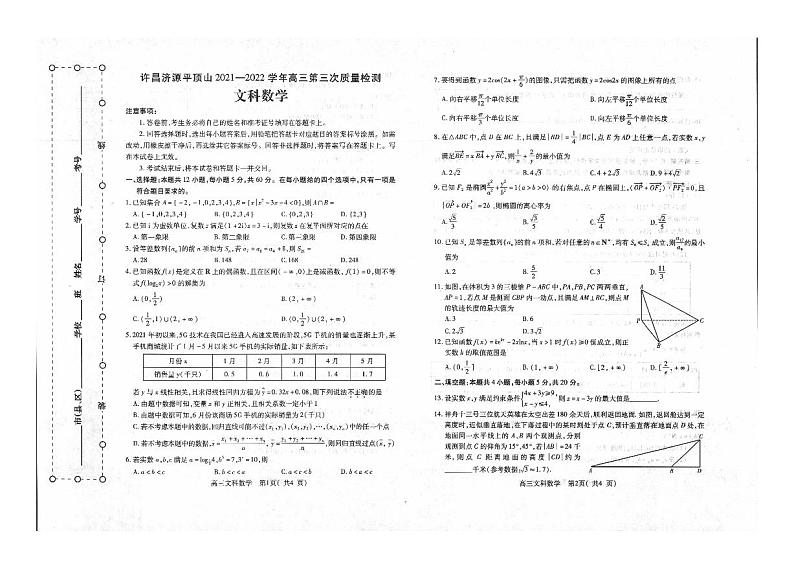 许昌济源平顶山 2021—2022 学年高三第三次质量检测
文科数学
注意事项：
1. 答卷前，考生务必将自己的姓名和准考证号填写在答题卡上。
2. 回答选择题时，选出每小题答案后，用铅笔把答题卡对应题目的答案标号涂黑。如需
改动，用橡皮擦干净后，再选涂其它答案标号。回答非选择题时，将答案写在答题卡上。写
在本试卷上无效。
3. 考试结束后，将本试卷和答题卡一并交回。
一、选择题：本题共 12 小题，每小题 5 分，共 60 分。在每小题给的四个选项中，只有一项是
符合题目要求的。
1. 已知集合 A={-2,-1,0,2,3,4}, B={x|x²-3x-4<0}，则 A∩B=
A. {-1,0,2,3,4} B. {0,2,3,4} C. {0,2,3} D. {2,3}
2. 已知 i 为虚数单位，复数 z 满足 (1+2i)z=3-i，则复数 z 在复平面所对应的点在
A. 第一象限 B. 第二象限 C. 第三象限 D. 第四象限
A. 28 B. 148 C. 168 D. 248
4. 已知函数 f(x) 是定义在 R 上的偶函数，且在区间 (-∞,0) 上是减函数，f(1)=0，则不等
式 f(log₂x)>0 的解集为
A. (0,1/2) B. (2,+∞)
C. (1/2,1)∪(2,+∞) D. (0,1/2)∪(2,+∞)
5. 2021 年初以来，5G 技术在我国已经进入高速发展的阶段，5G 手机的销量也逐渐上升，某
手机商城统计了 1 月-5 月以来 5G 手机的实际销量，如下表所示：
月份 x 1 月 2 月 3 月 4 月 5 月
销售量 y(千只) 0.5 0.6 1.0 1.4 1.7
若 y 与 x 线性相关，且求得线性回归方程为 ŷ=0.32x+0.08，则下列说法不正确的是
A. 由题中数据可知，变量 x 和 y 正相关，且相关系数一定小于 1
B. 由题中数据可知，6 月份该商场 5G 手机的实际销量为 2(千只)
C. 若不考虑本题中的数据，回归直线可能不过 (x₁,y₁),(x₂,y₂),…,(xₙ,yₙ) 中的任一个点
6. 若实数 a,b,c 满足
A. a<b<c B. b<c<a C. a<c<b D. b<a<c
高三文科数学 第1页( 共4 页)
7. 要得到函数 y=2cos(2x+π/6) 的图像，只需把函数 y=2cos2x 的图像上所有的点
A. 向右平移 π/12 个单位长度 B. 向左平移 π/12 个单位长度
C. 向右平移 π/3 个单位长度 D. 向左平移 π/6 个单位长度
8. 在△ABC 中，点 D 在 BC 上，且满足 |BD|=1/4|BC|，点 E 为 AD 上任意一点，若实数 x,y
满足 BE=xBA+yBC，则 1/x+2/y 的最小值为
A. 2√2 B. 4√3 C. 4+2√3 D. 9+4√2
9. 已知 F₂ 是椭圆 x²/a²+y²/b²=1(a>b>0) 的右焦点，点 P 在椭圆上，(OP+OF₂)·PF₂=0，且
|OP+OF₂|=2b，则椭圆的离心率为
10. 已知 Sₙ 是等差数列{aₙ}的前 n 项和，若对任意的 n∈N*，均有 S₆≤Sₙ 成立，则
的最小
值为
A. 2 B. 5/2 C. 3 D. 11/3
11. 如图，在体积为 3 的三棱锥 P-ABC 中，PA,PB,PC 两两垂直，
AP=1，若点 M 是侧面 CBP 内一动点，且满足 AM⊥BC，则点 M
的轨迹长度的最大值为
A. 3 B. 6
C. 2√3 D. 3√2
12. 已知函数 f(x)=kx²-2xlnx，当 x>1 时 f(x)≥0 恒成立，则正
实数 k 的取值范围是
B. (1,+∞) C. [2,+∞) D. [2/e,+∞)
二、填空题：本题共 4 小题，每小题 5 分，共 20 分。
13. 实数 x,y 满足约束条件{4x+3y≥9, x-y≤4,
则 z=x-3y 的最大值是
14. 神舟十三号三位航天英雄在太空出差 180 余天后，顺利返回地面. 如图，返回舱达到一定
高度时，近似垂直落地，在下落过程中的某时刻处于点 C，预计垂直落在地面点 D 处，在
地面同一水平线上的 A,B 两个观测点，分别
观测到点 C 的仰角为 15°,45°，若 |AB|=24 千
米，则点 C 距离地面的高度 |CD| 约为
千米(参考数据：√3≈1.7).
高三文科数学 第2页( 共4 页)
考号
学号
姓名
班
学校
市(县、区)
线
订
装